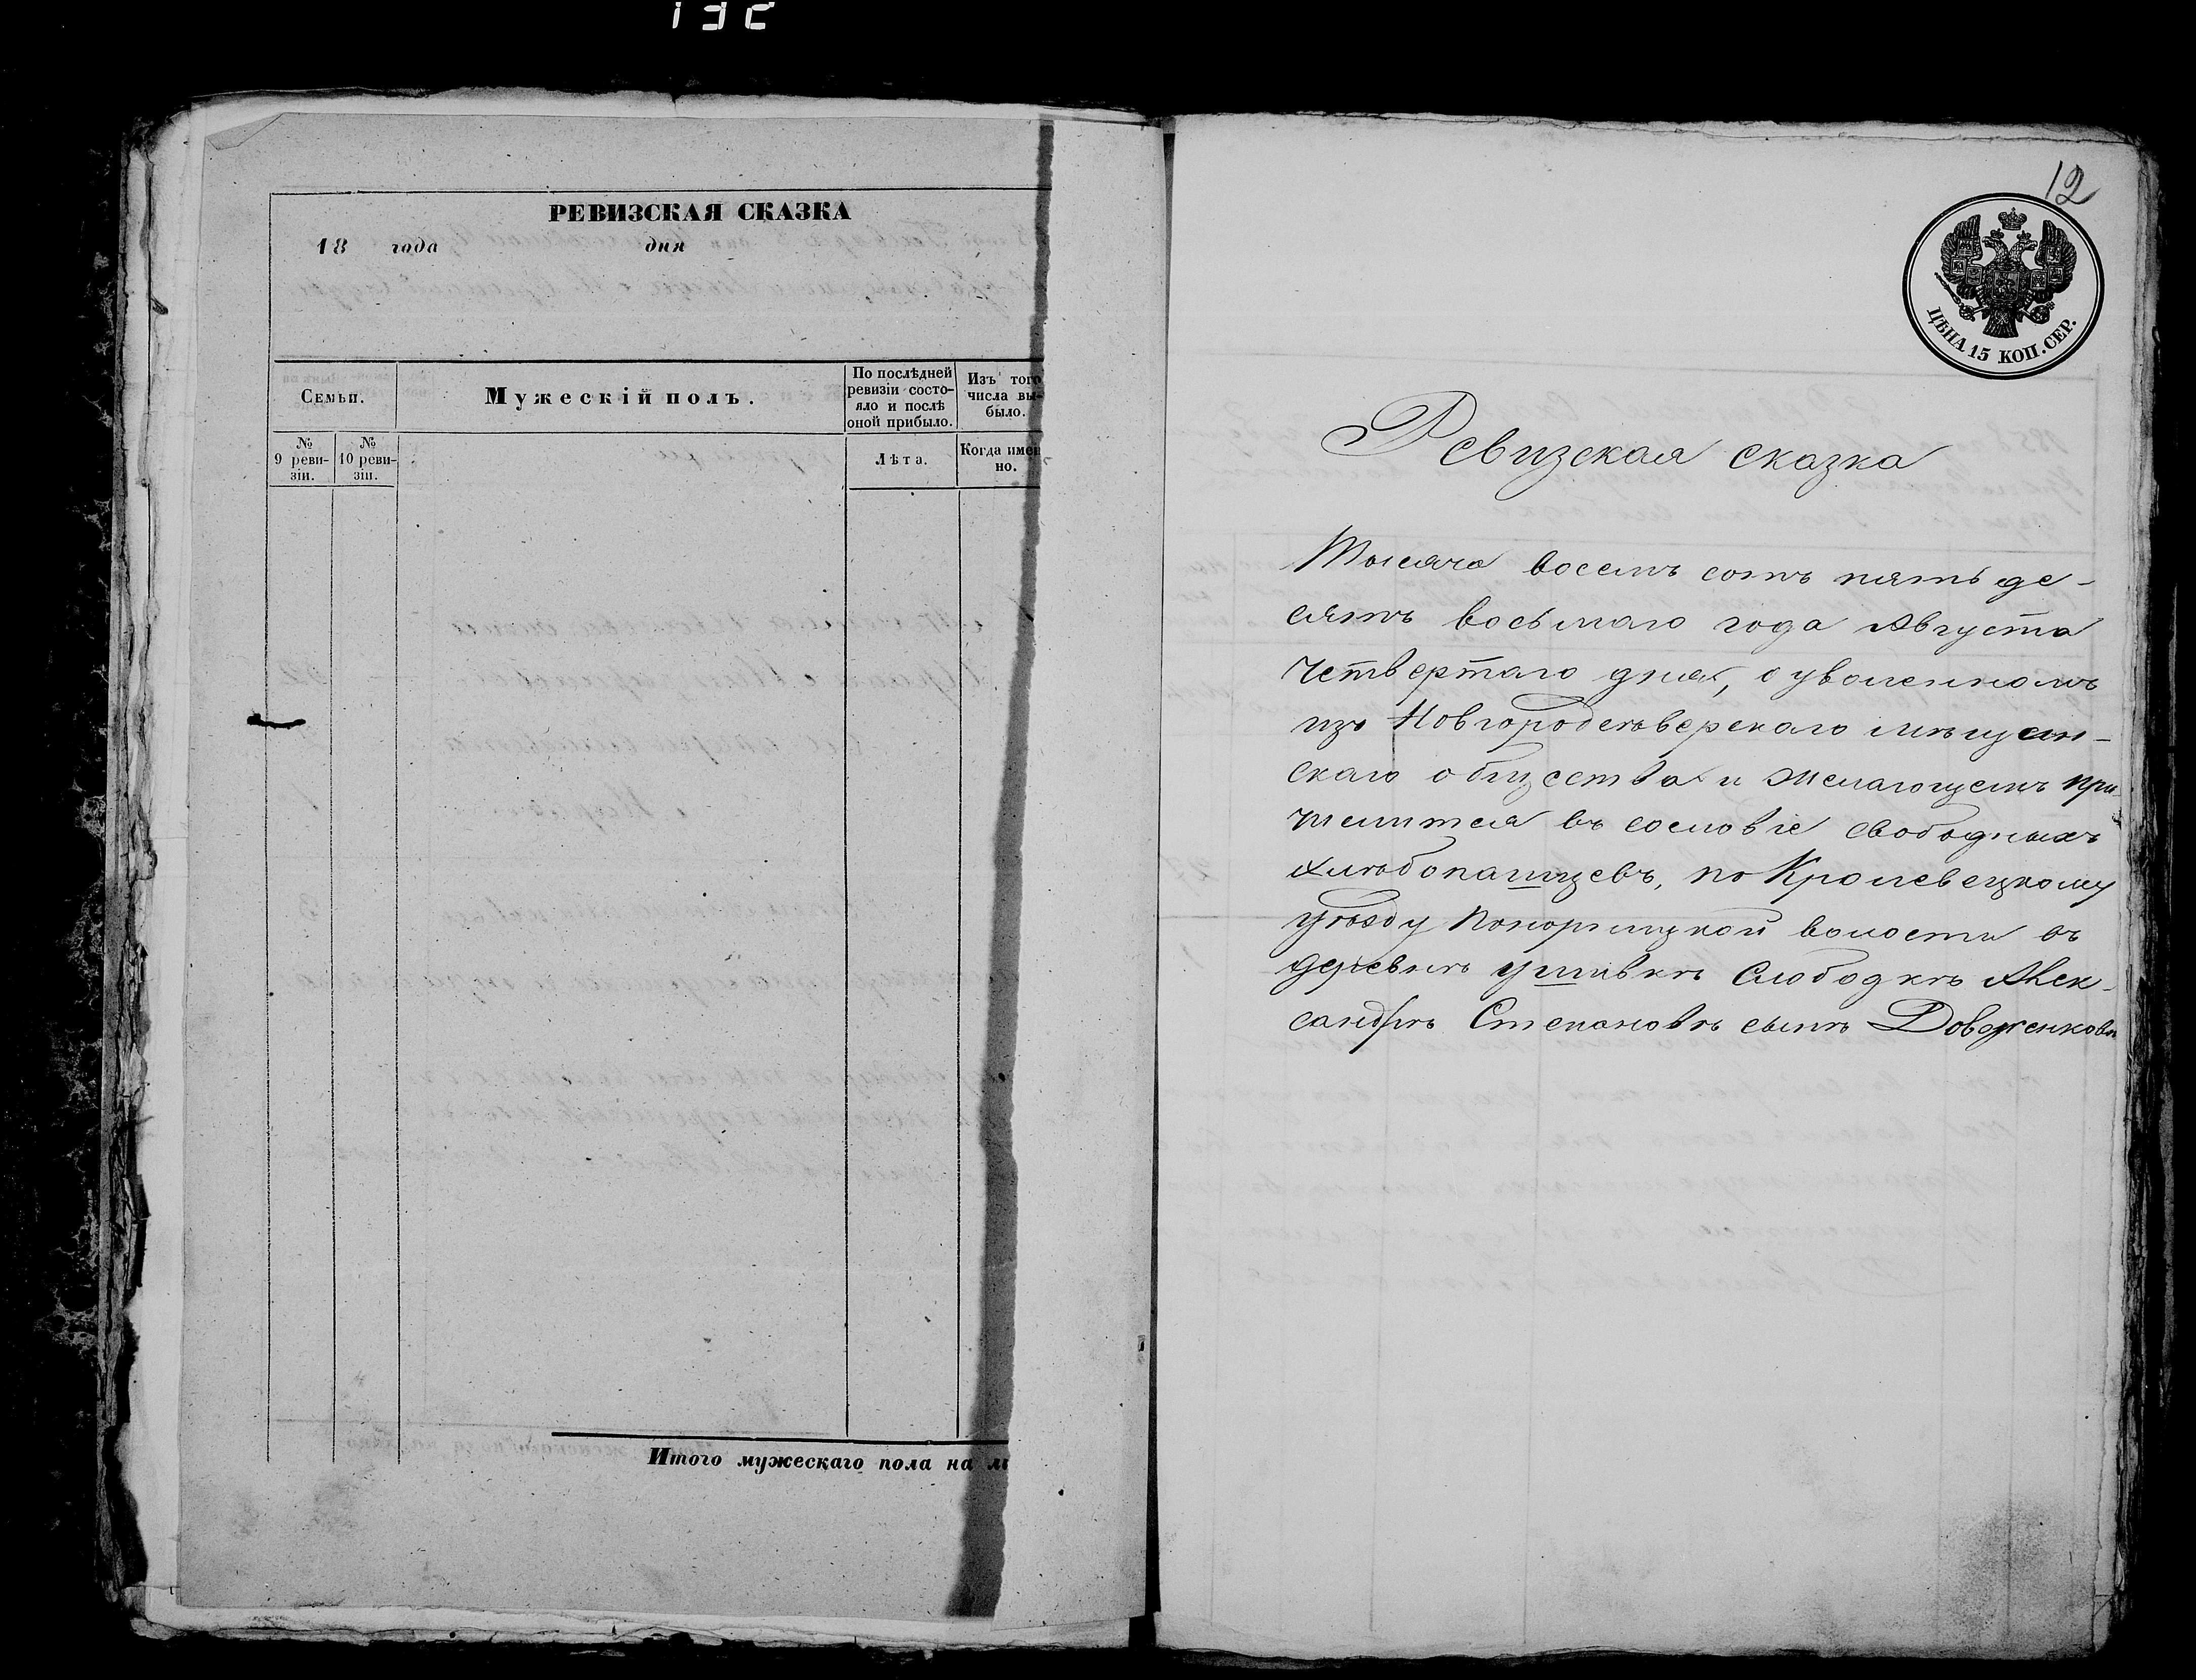 132
РЕВИЗСКАЯ СКАЗКА
18 года дня
Семьи.
Мужескій полъ.
По послѣдней ревизіи состо-
яло и послѣ
оной прибыло.
Изъ того
числа вы-
было.
№
9 реви-
зіи.
№
10 реви-
зіи.
Лѣта.
Когда имен
но.
Итого мужескаго пола на ли
12
ЦѢНА 15 КОП. СЕР.
Ревизская сказка
Тысяча восемь сотъ пять де-
сятъ восьмаго года Августа
четвертаго дня, о уволенномъ
изъ Новгородсѣверскаго мѣщан-
скаго общества и желающемъ при-
числится въ сословіе свободныхъ
хлѣбопашцевъ, по Кролевецкому
уѣзду Понорницкой волости въ
деревнѣ Ушивкѣ Слободкѣ Алек-
сандрѣ Степановѣ сынѣ Довженковѣ